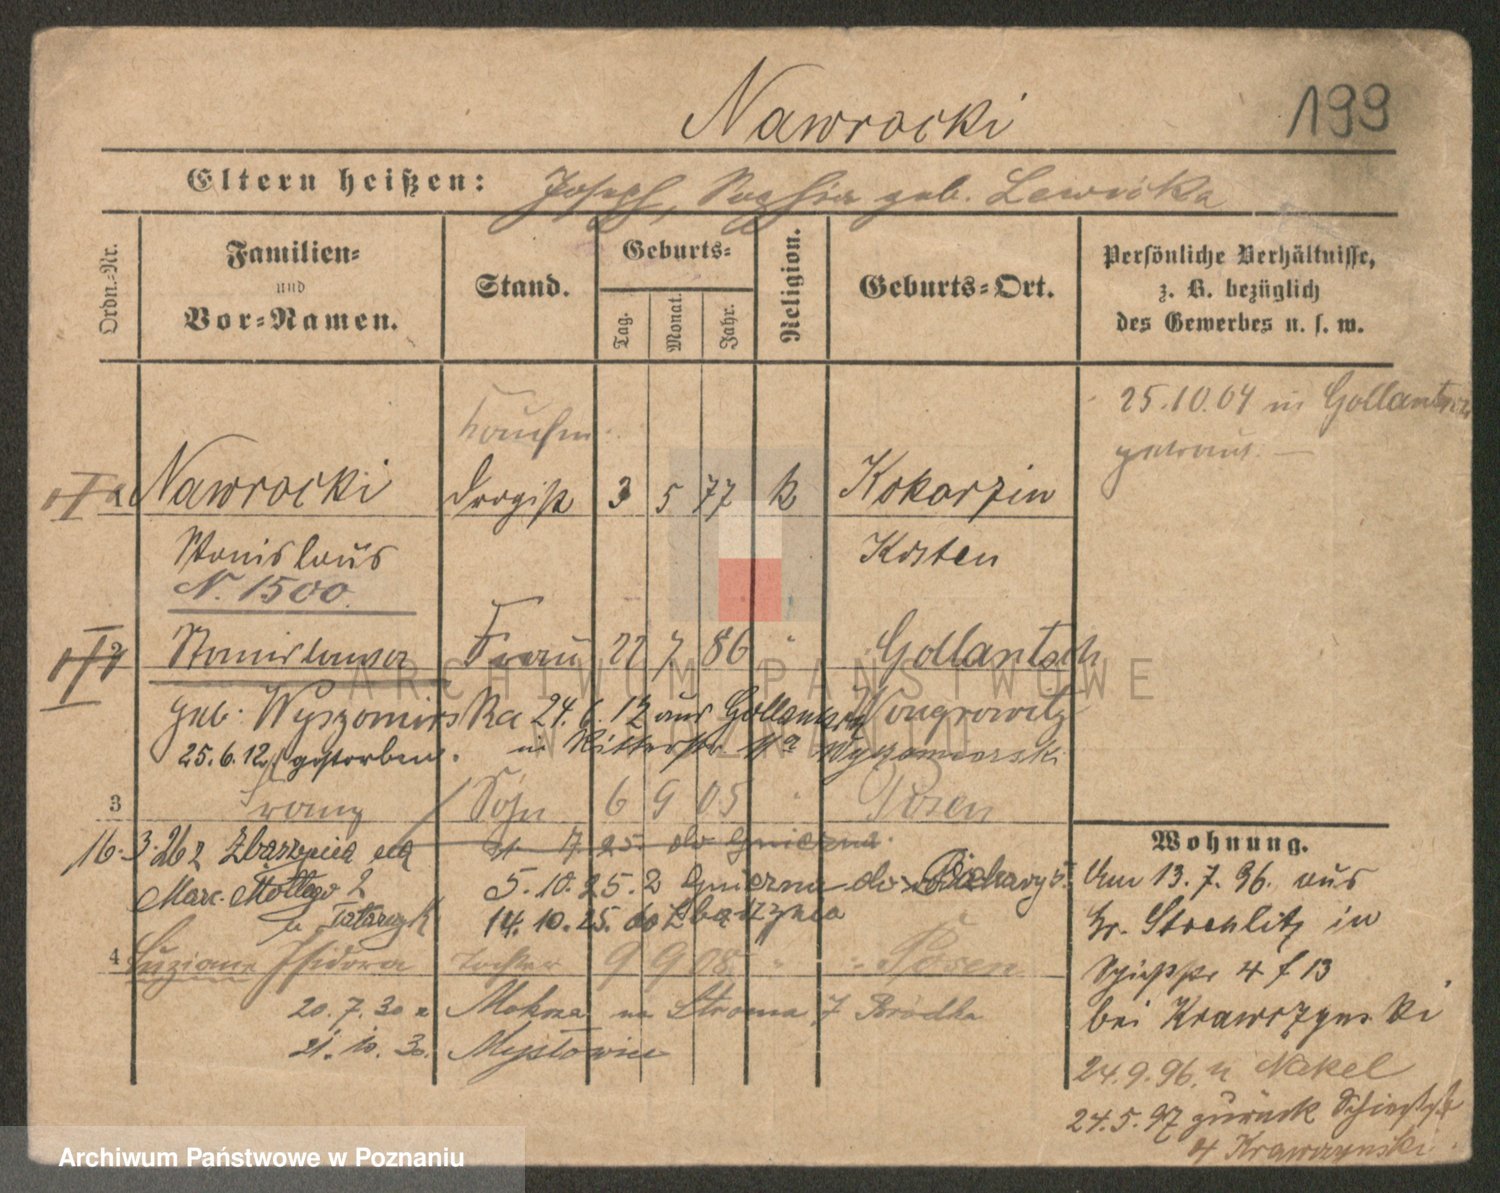 Nawrocki
199
Eltern heißen: Joseph, Sophia geb. Lewicka
Ordn.-Nr.
Familien-
und
Vor-Namen.
Stand.
Geburts-
Tag.
Monat.
Jahr.
Religion.
Geburts-Ort.
Persönliche Verhältnisse,
z. B. bezüglich
des Gewerbes u. s. w.
25.10.04 in Gollantsch
getraut.
Kaufm.
Nawrocki Drogist 3 5 77 k Kokorzin
Stanislaus Kosten
N. 1500
2 Stanislawa Frau 22 7 86 " Gollantsch
geb. Wyszomirska 24.6.12 aus Gollantsch Wongrowitz
25.6.12 gestorben. in Ritterstr 11a Wyszomirski
3 Franz Sohn 6 9 05 " Posen
16.3.26 z Zbąszynia na 7 25 do Gniezna
Marc. Mottego 2 5.10.25. z Gniezna do
u Tatarczyk 14.10.25. do Zbąszynia
4 Luziane Isidora Tochter 9 9 08 " " Posen
20.7.30 z Mokra na Stroma 7 Bródka
21.10.30. Mysłowice
Wohnung.
Am 13.7.96. aus
Gr. Strehlitz in
Schießstr 4 f 13
bei Krawczynski
24.9.96. n Nakel
24.5.97 zurück Schießstr
4 Krawczynski
ARCHIWUM PAŃSTWOWE
W POZNANIU
Archiwum Państwowe w Poznaniu